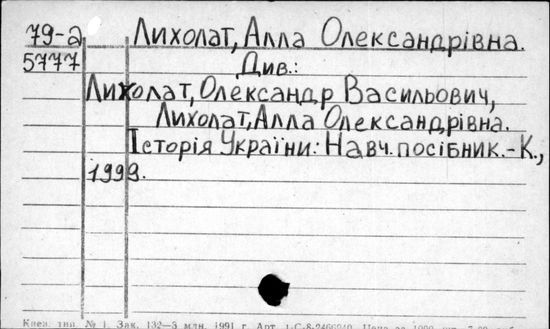 79-а Лихолат, Алла Олександрівна.
5777 Див.:
Лихолат, Олександр Васильович,
Лихолат, Алла Олександрівна.
Історія України: Навч. посібник.-К.,
1999.
Квев. тип. № 1. Зак. 132—3 млн. 1991 г. Арт. 1-С-8-2466940. Цена за 1000